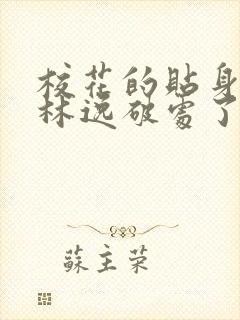 校花的貼身
林逸破處了
蘇主荣